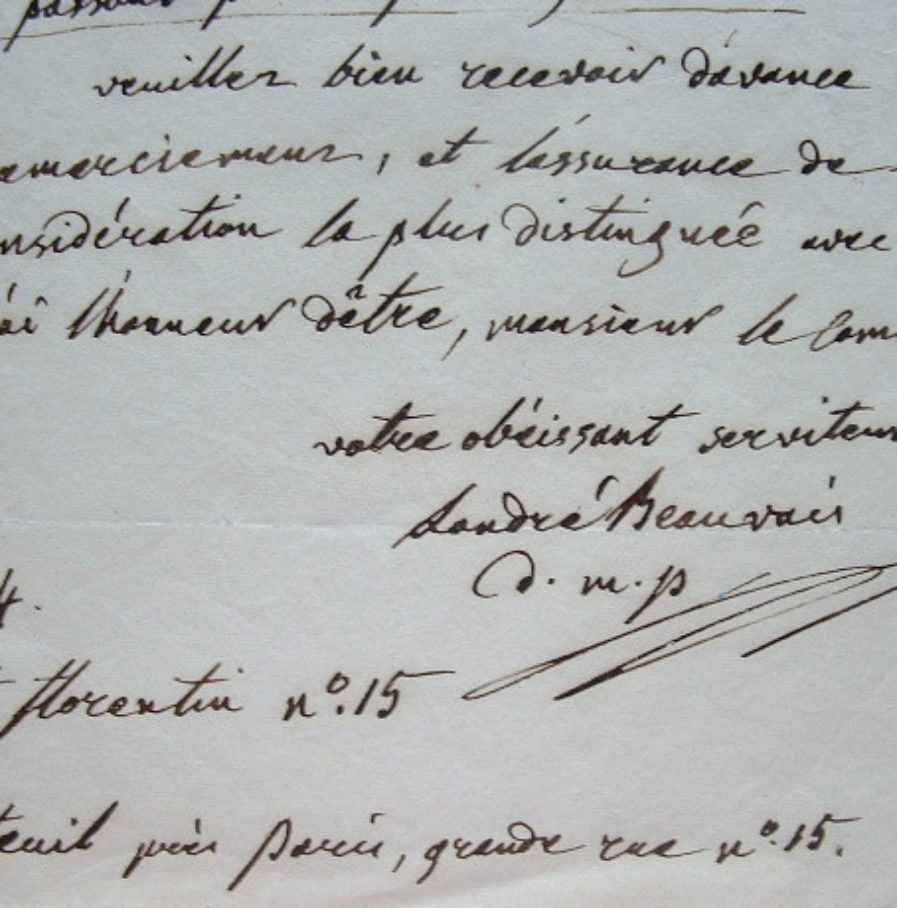 veuillez bien recevoir d'avance
emerciemens, et l'assurance de
nsidération la plus distinguée avec
ai l'honneur d'être, monsieur le Com
votre obéissant serviteur
Landré Beauvais
d. m. p
4.
florentin n.º 15
teuil près Paris, grande rue n.º 15.